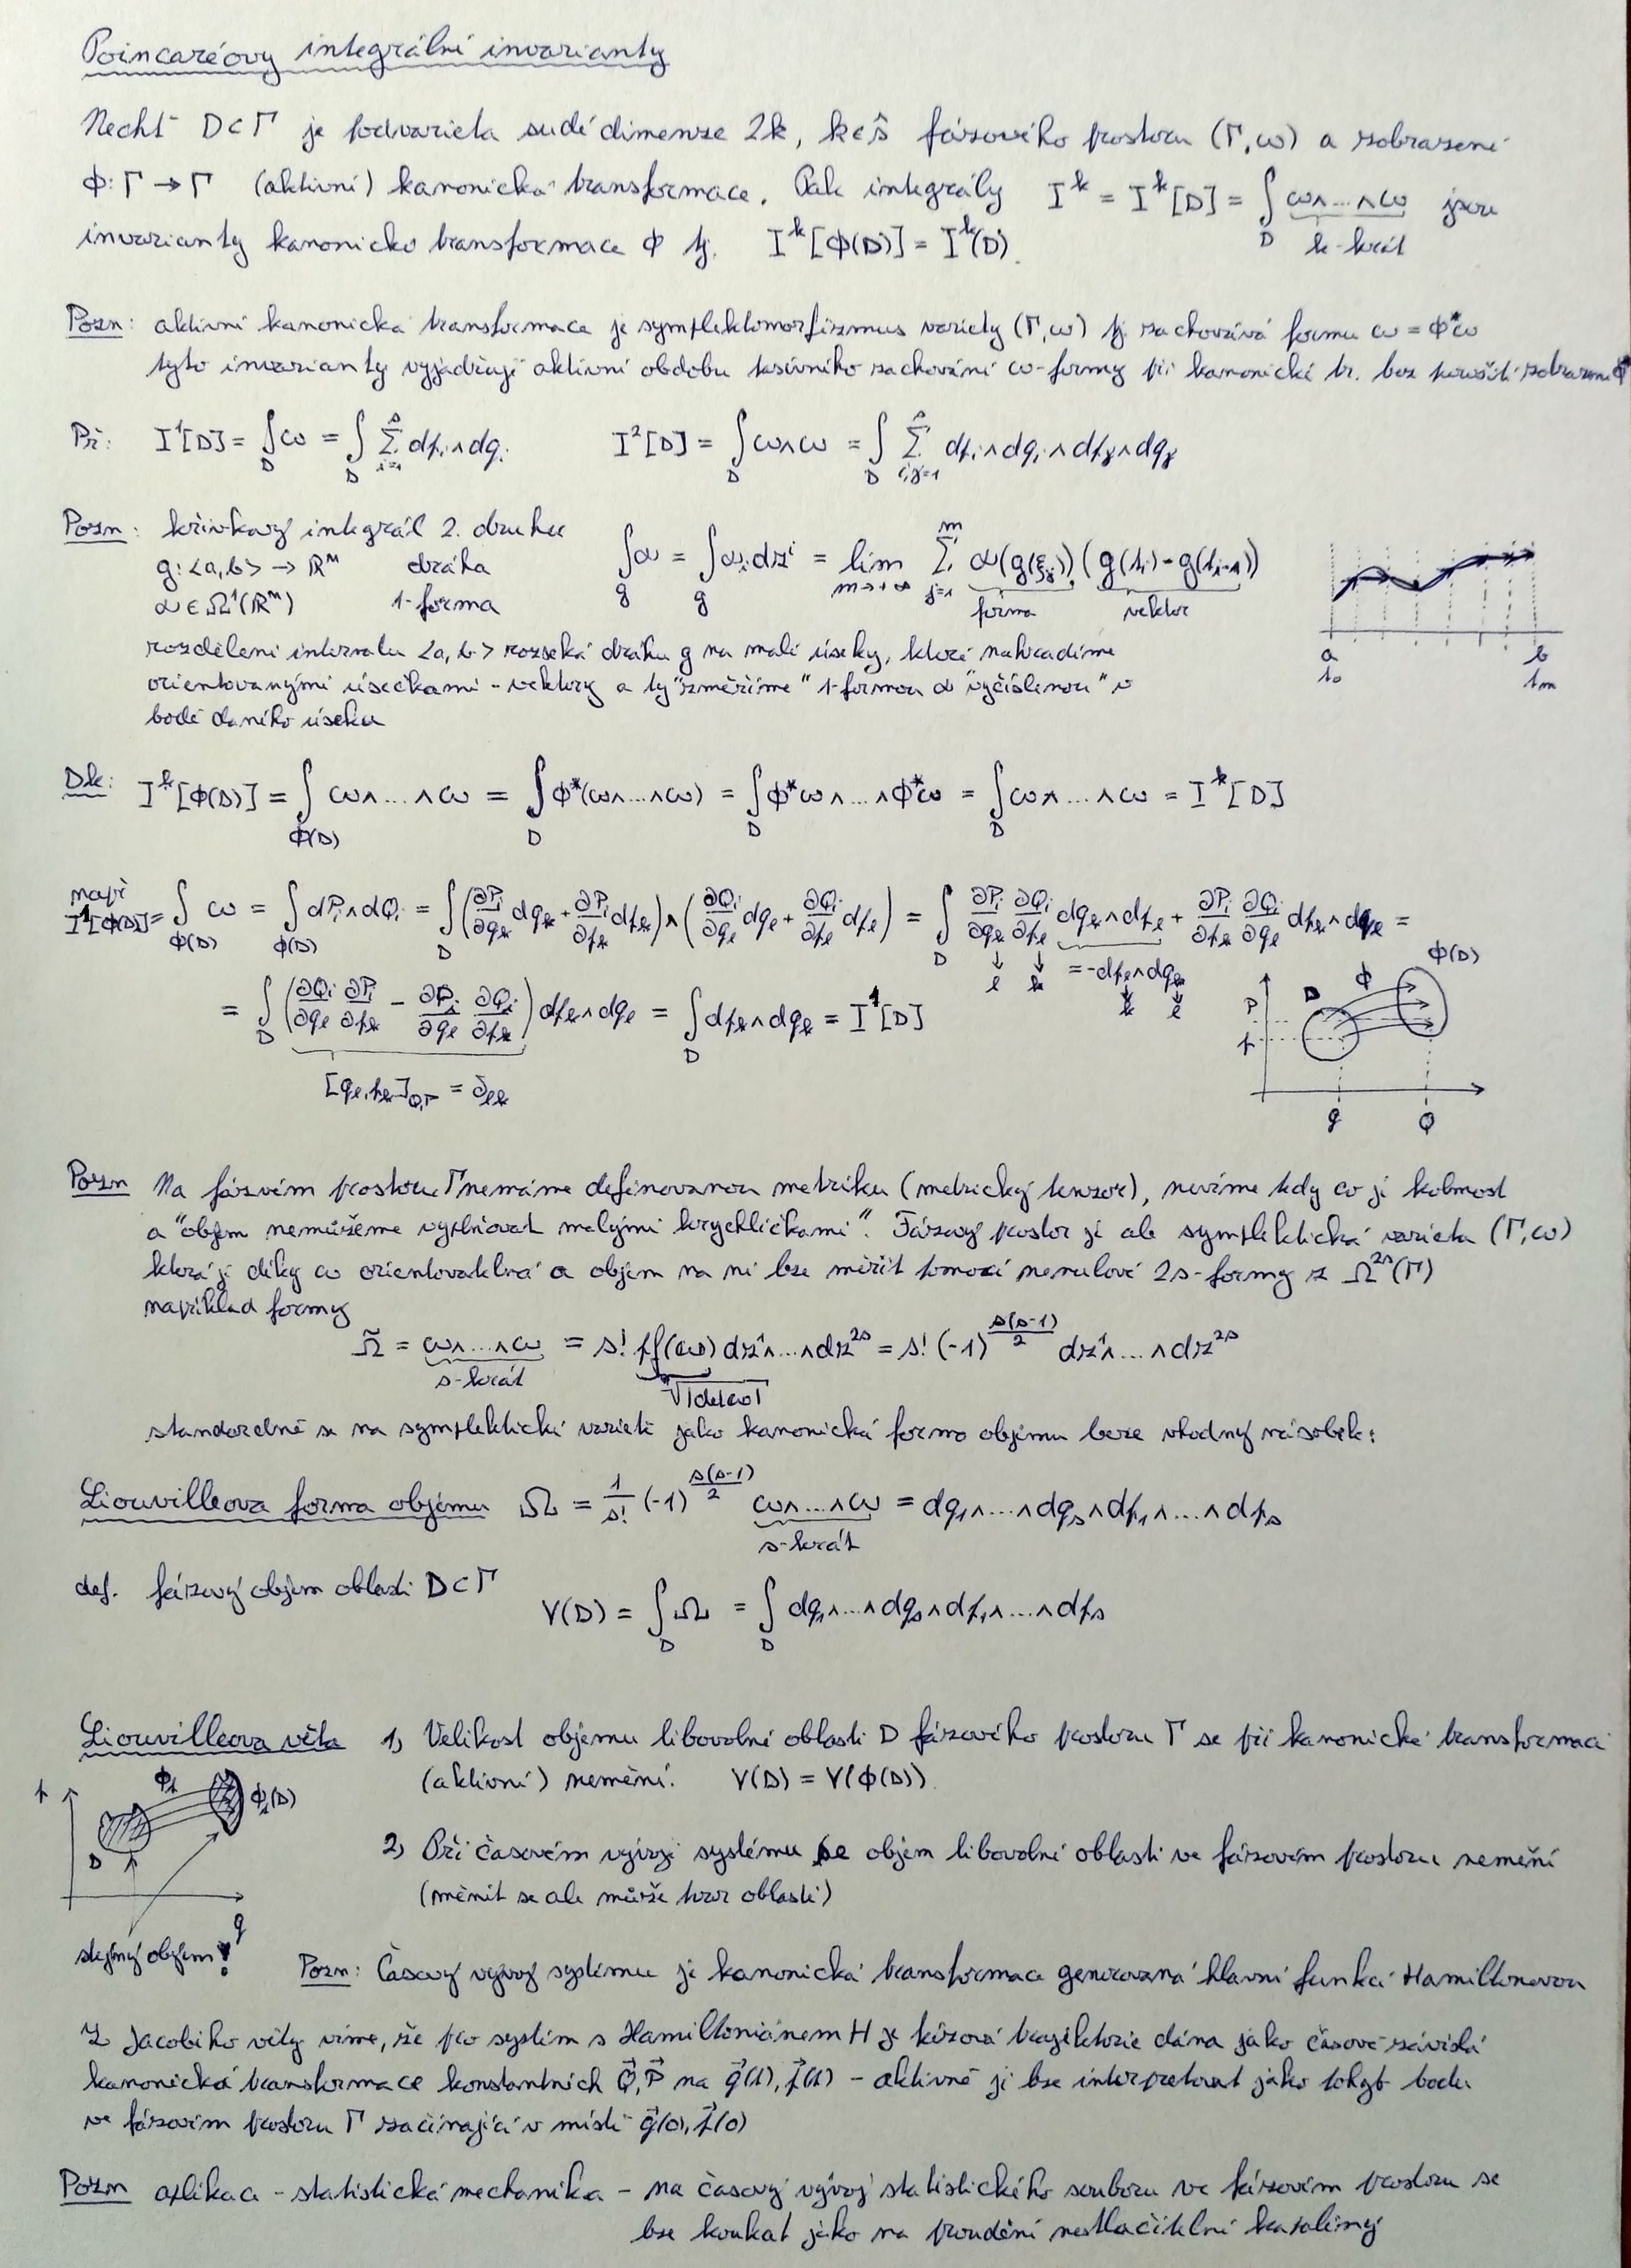 Poincaréovy integrální invarianty
Nechť D⊂Γ je podvarieta sudé dimenze 2k, k∈ŝ fázového prostoru (Γ,ω) a zobrazení
Φ:Γ→Γ (aktivní) kanonická transformace. Pak integrály I^k = I^k[D] = ∫_D ω∧...∧ω jsou
k-krát
invarianty kanonické transformace Φ tj. I^k[Φ(D)] = I^k(D).
Pozn: aktivní kanonická transformace je symplektomorfizmus variety (Γ,ω) tj zachovává formu ω = Φ*ω
tyto invarianty vyjadřují aktivní obdobu pasivního zachování ω-formy při kanonické tr. bez použití zobrazení Φ
Př: I^1[D] = ∫_D ω = ∫_D Σ_{i=1}^s dp_i∧dq_i I^2[D] = ∫_D ω∧ω = ∫_D Σ_{i,j=1}^s dp_i∧dq_i∧dp_j∧dq_j
Pozn: křivkový integrál 2. druhu
g: <a,b> → ℝ^n dráha ∫_g α = ∫_g α_i dx^i = lim_{m→+∞} Σ_{j=1}^m α(g(ξ_j)) (g(t_j)-g(t_{j-1}))
α ∈ Ω^1(ℝ^n) 1-forma forma vektor
rozdělení intervalu <a,b> rozseká dráhu g na malé úseky, které nahradíme
orientovanými úsečkami - vektory a ty "změříme" 1-formou α "vyčíslenou" v
bodě daného úseku
a b
t_0 t_m
Dk: I^k[Φ(D)] = ∫_{Φ(D)} ω∧...∧ω = ∫_D Φ*(ω∧...∧ω) = ∫_D Φ*ω∧...∧Φ*ω = ∫_D ω∧...∧ω = I^k[D]
např
I^1[Φ(D)] = ∫_{Φ(D)} ω = ∫_{Φ(D)} dP_i∧dQ_i = ∫_D (∂P_i/∂q_k dq_k + ∂P_i/∂p_k dp_k)∧(∂Q_i/∂q_l dq_l + ∂Q_i/∂p_l dp_l) = ∫_D ∂P_i/∂q_k ∂Q_i/∂p_l dq_k∧dp_l + ∂P_i/∂p_k ∂Q_i/∂q_l dp_k∧dq_l =
↓ l ↓ k = -dp_l∧dq_k ↓ k ↓ l
= ∫_D (∂Q_i/∂q_l ∂P_i/∂p_k - ∂P_i/∂q_l ∂Q_i/∂p_k) dp_k∧dq_l = ∫_D dp_k∧dq_k = I^1[D]
[q_l,p_k]_{Q,P} = δ_{lk}
P p D Φ Φ(D) q Q
Pozn Na fázovém prostoru Γ nemáme definovanou metriku (metrický tenzor), nevíme tedy co je kolmost
a "objem nemůžeme vyplňovat malými krychličkami". Fázový prostor je ale symplektická varieta (Γ,ω)
která je díky ω orientovatelná a objem na ní lze měřit pomocí nenulové 2s-formy z Ω^{2s}(Γ)
například formy
Ω̃ = ω∧...∧ω = s! pf(ω) dx^1∧...∧dx^{2s} = s! (-1)^{s(s-1)/2} dx^1∧...∧dx^{2s}
s-krát √|det ω|
standardně se na symplektické varietě jako kanonická forma objemu bere vhodný násobek:
Liouvilleova forma objemu Ω = 1/s! (-1)^{s(s-1)/2} ω∧...∧ω = dq_1∧...∧dq_s∧dp_1∧...∧dp_s
s-krát
def. fázový objem oblasti D⊂Γ
V(D) = ∫_D Ω = ∫_D dq_1∧...∧dq_s∧dp_1∧...∧dp_s
Liouvilleova věta 1) Velikost objemu libovolné oblasti D fázového prostoru Γ se při kanonické transformaci
(aktivní) nemění. V(D) = V(Φ(D))
p Φ_t Φ_t(D) D q
2) Při časovém vývoji systému se objem libovolné oblasti ve fázovém prostoru nemění
(měnit se ale může tvar oblasti)
stejný objem!
Pozn: Časový vývoj systému je kanonická transformace generovaná hlavní funkcí Hamiltonovou
Z Jacobiho věty víme, že pro systém s Hamiltoniánem H je fázová trajektorie dána jako časově závislá
kanonická transformace konstantních Q⃗,P⃗ na q⃗(t),p⃗(t) - aktivně ji lze interpretovat jako pohyb bodu
ve fázovém prostoru Γ začínající v místě q⃗(0),p⃗(0)
Pozn aplikace - statistická mechanika - na časový vývoj statistického souboru ve fázovém prostoru se
lze koukat jako na proudění nestlačitelné kapaliny